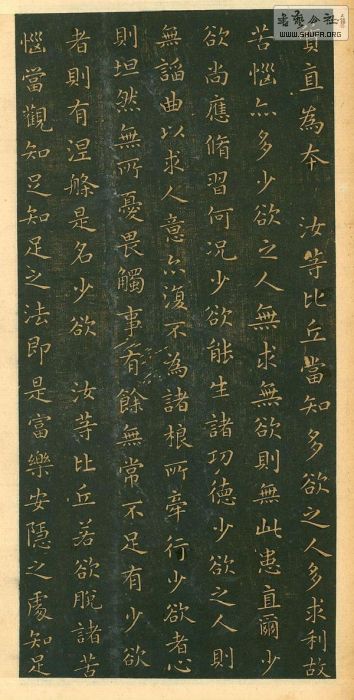 書藝公社
WWW.SHUFA.ORG
質直為夲　汝等比丘當知多欲之人多求利故
苦惱亦多少欲之人無求無欲則無此患直爾少
欲尚應脩習何況少欲能生諸功德少欲之人則
無諂曲以求人意亦復不為諸根所牽行少欲者心
則坦然無所憂畏觸事有餘無常不足有少欲
者則有涅槃是名少欲　汝等比丘若欲脫諸苦
惱當觀知足知足之法即是富樂安隱之處知足